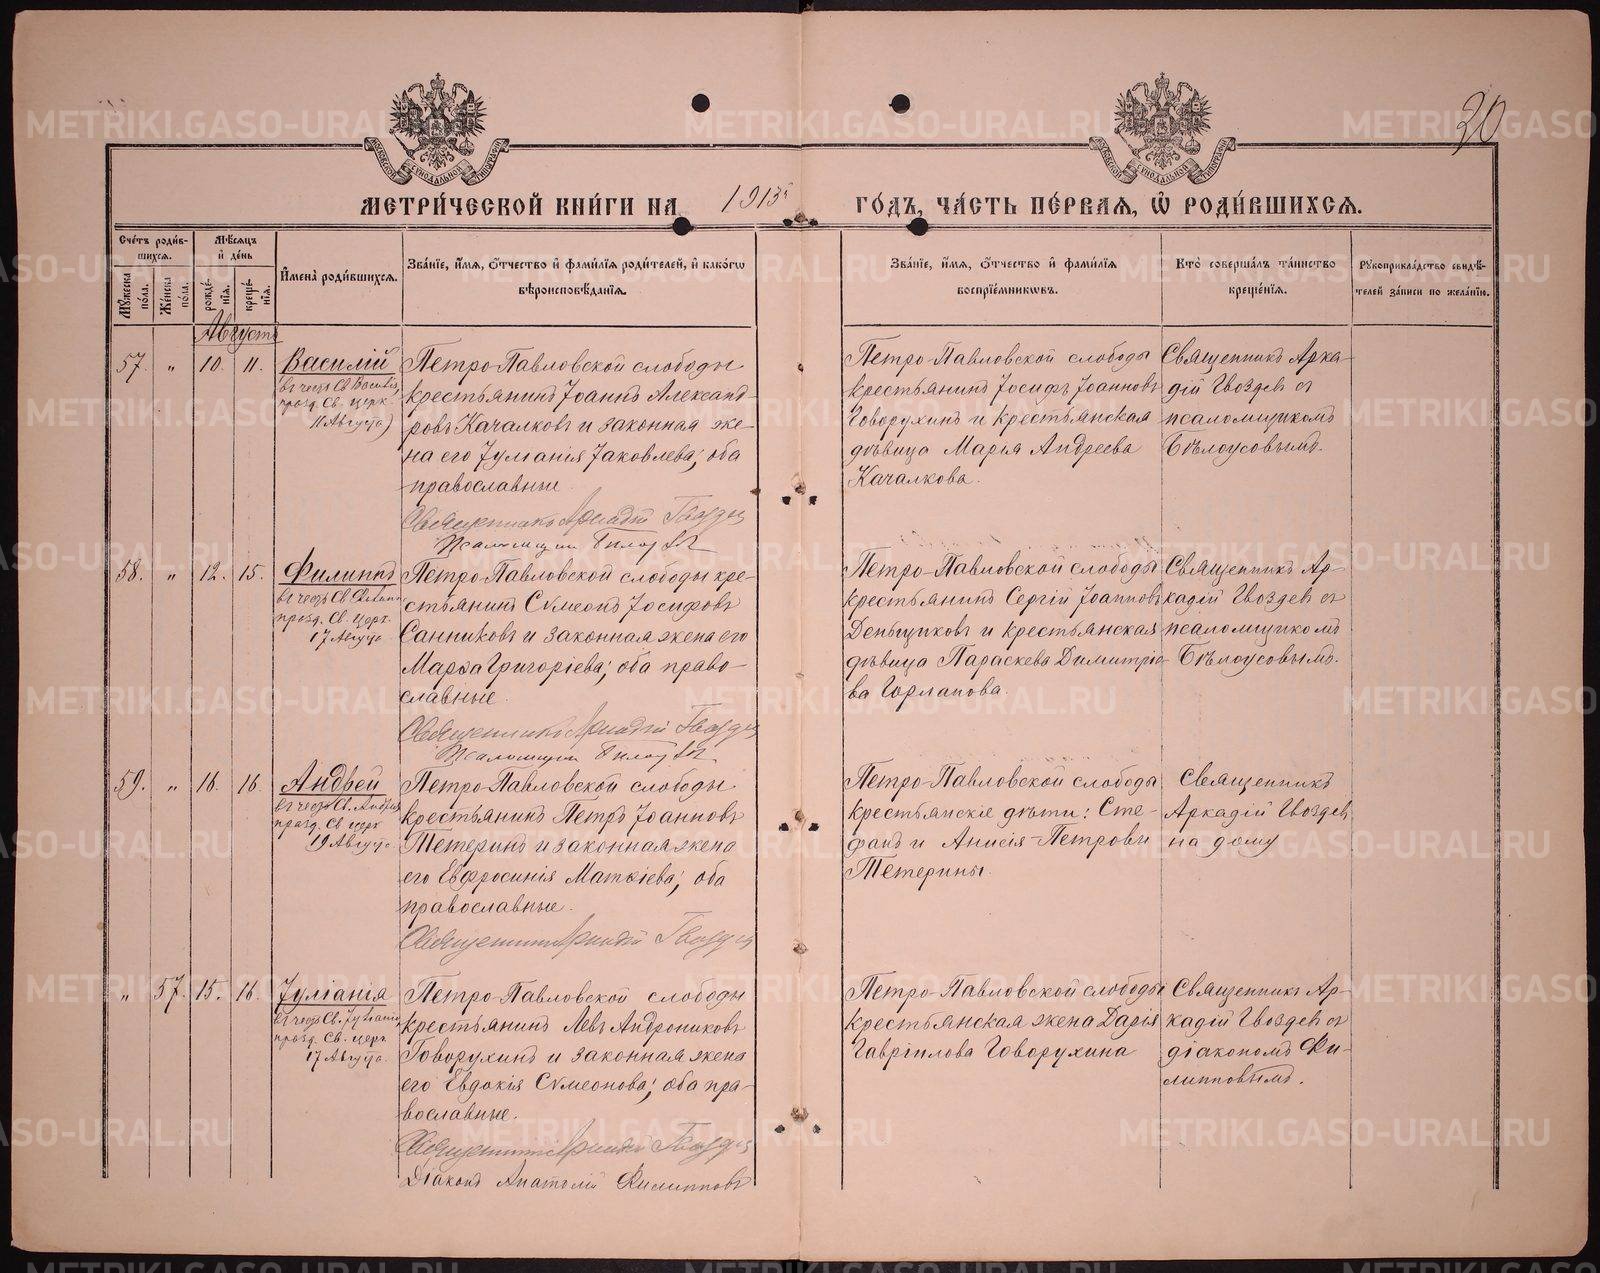 20
МЕТРИ́ЧЕСКОЙ КНИ́ГИ НА 1913й ГО́ДЪ, ЧА́СТЬ ПЕ́РВАЯ, Ѡ РОДИ́ВШИХСЯ.
Сче́тъ роди́в-
шихся.
Мꙋ́жеска по́ла.
Же́нска по́ла.
Мѣ́сяцъ и҆ де́нь
рожде́-
нїѧ.
креще́-
нїѧ.
И҆мена̀ роди́вшихся.
Зва́нїе, и҆́мѧ, ѻ҆́тчество и҆ фами́лїѧ роди́телей, и҆ како́гѡ
вѣроисповѣ́данїѧ.
Зва́нїе, и҆́мѧ, ѻ҆́тчество и҆ фами́лїѧ
воспрїе́мникѡвъ.
Кто̀ соверша́лъ та́инство
креще́нїѧ.
Рꙋкоприкла́дство свидѣ́-
телей за́писи по жела́нїю.
Августъ
57. „ 10. 11.
Василій
въ честь Св. Василія
празд. Св. церк.
11 Августа)
Петро-Павловской слободы
крестьянинъ Іоаннъ Александ-
ровъ Качалковъ и законная же-
на его Іуліанія Іаковлева; оба
православные.
Священникъ Аркадій Гвоздевъ
Псаломщикъ Бѣлоусовъ
Петро-Павловской слободы
крестьянинъ Іосифъ Іоанновъ
Говорухинъ и крестьянская
дѣвица Марія Андреева
Качалкова.
Священникъ Арка-
дій Гвоздевъ съ
псаломщикомъ
Бѣлоусовымъ.
58. „ 12. 15.
Филиппъ
въ честь Св. Филиппа
празд. Св. церк.
17 Августа
Петро-Павловской слободы кре-
стьянинъ Сѵмеонъ Іосифовъ
Санниковъ и законная жена его
Марѳа Григоріева; оба право-
славные.
Священникъ Аркадій Гвоздевъ
Псаломщикъ Бѣлоусовъ
Петро-Павловской слободы
крестьянинъ Сергій Іоанновъ
Деньщиковъ и крестьянская
дѣвица Параскева Димитріе-
ва Горланова.
Священникъ Ар-
кадій Гвоздевъ съ
псаломщикомъ
Бѣлоусовымъ.
59. „ 16. 16.
Андрей
въ честь Св. Андрея
празд. Св. церк.
19 Августа
Петро-Павловской слободы
крестьянинъ Петръ Іоанновъ
Тетеринъ и законная жена
его Евфросинія Матѳіева; оба
православные.
Священникъ Аркадій Гвоздевъ
Петро-Павловской слобода
крестьянскіе дѣти: Сте-
фанъ и Анисія Петровы
Тетерины.
Священникъ
Аркадій Гвоздевъ
на дому
„ 57. 15. 16.
Іуліанія
въ честь Св. Іуліаніи
празд. Св. церк.
17 Августа.
Петро-Павловской слободы
крестьянинъ Левъ Андрониковъ
Говорухинъ и законная жена
его Евдокія Сѵмеонова; оба пра-
вославные.
Священникъ Аркадій Гвоздевъ
Діаконъ Анатолій Филипповъ
Петро-Павловской слободы
крестьянская жена Дарія
Гавріилова Говорухина
Священникъ Ар-
кадій Гвоздевъ съ
діакономъ Фи-
липповымъ.
METRIKI.GASO-URAL.RU